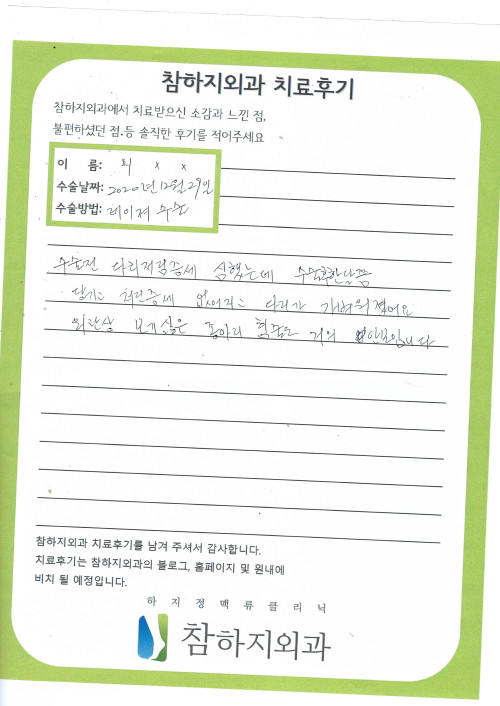 참하지외과 치료후기
참하지외과에서 치료받으신 소감과 느낀 점,
불편하셨던 점.등 솔직한 후기를 적어주세요
이 름: 최 x x
수술날짜: 2020년 12월 29일
수술방법: 레이져 수술
수술전 다리저림증세 심했는데 수술후한달쯤
되니 저림증세 없어지고 다리가 가벼워졌어요
외관상 보기싫은 종아리 핏줄도 거의 안보입니다
참하지외과 치료후기를 남겨 주셔서 감사합니다.
치료후기는 참하지외과의 블로그, 홈페이지 및 원내에
비치 될 예정입니다.
하지정맥류클리닉
참하지외과